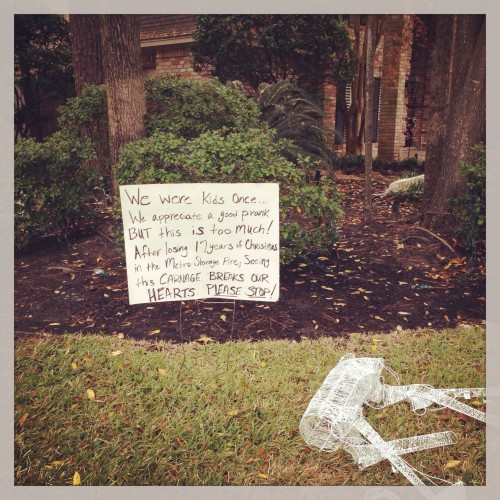 We were kids once...
We appreciate a good prank
BUT this is too much!
After losing 17 years of Christmas
in the Metro Storage Fire, Seeing
this CARNAGE BREAKS OUR
HEARTS PLEASE STOP!